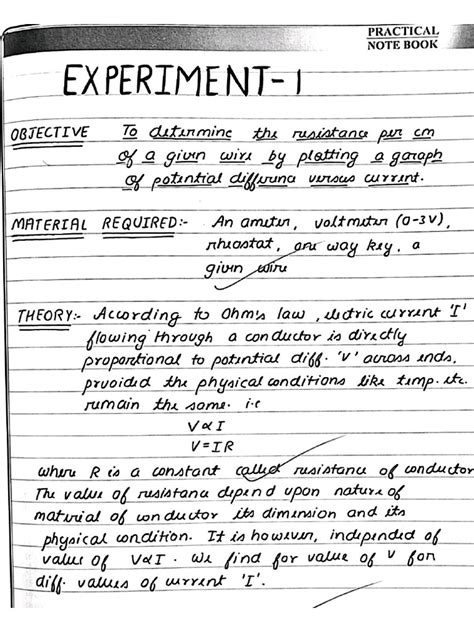 PRACTICAL
NOTE BOOK
EXPERIMENT-1
OBJECTIVE To determine the resistance per cm
of a given wire by plotting a garaph
of potential difference versus current.
MATERIAL REQUIRED:- An ameter, voltmeter (0-3V),
rheostat, one way key, a
given wire
THEORY:- According to Ohm's law, electric current 'I'
flowing through a conductor is directly
proportional to potential diff. 'V' across ends,
pruoided the physical conditions like temp. etc.
remain the same. i.e
V∝I
V=IR
where R is a constant called resistance of conductor
The value of resistance depend upon nature of
material of conductor its dimension and its
physical condition. It is however, independed of
value of V∝I. We find for value of V for
diff. values of current 'I'.